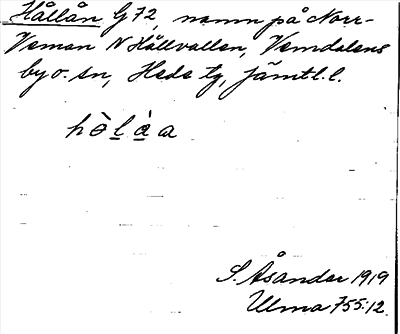 Hållån G72, namn på Norr-
Veman N Hållvallen, Vemdalens
by o. sn, Hede tg, Jämtl. l.
hòlàa
S. Åsander 1919
Ulma 755:12.